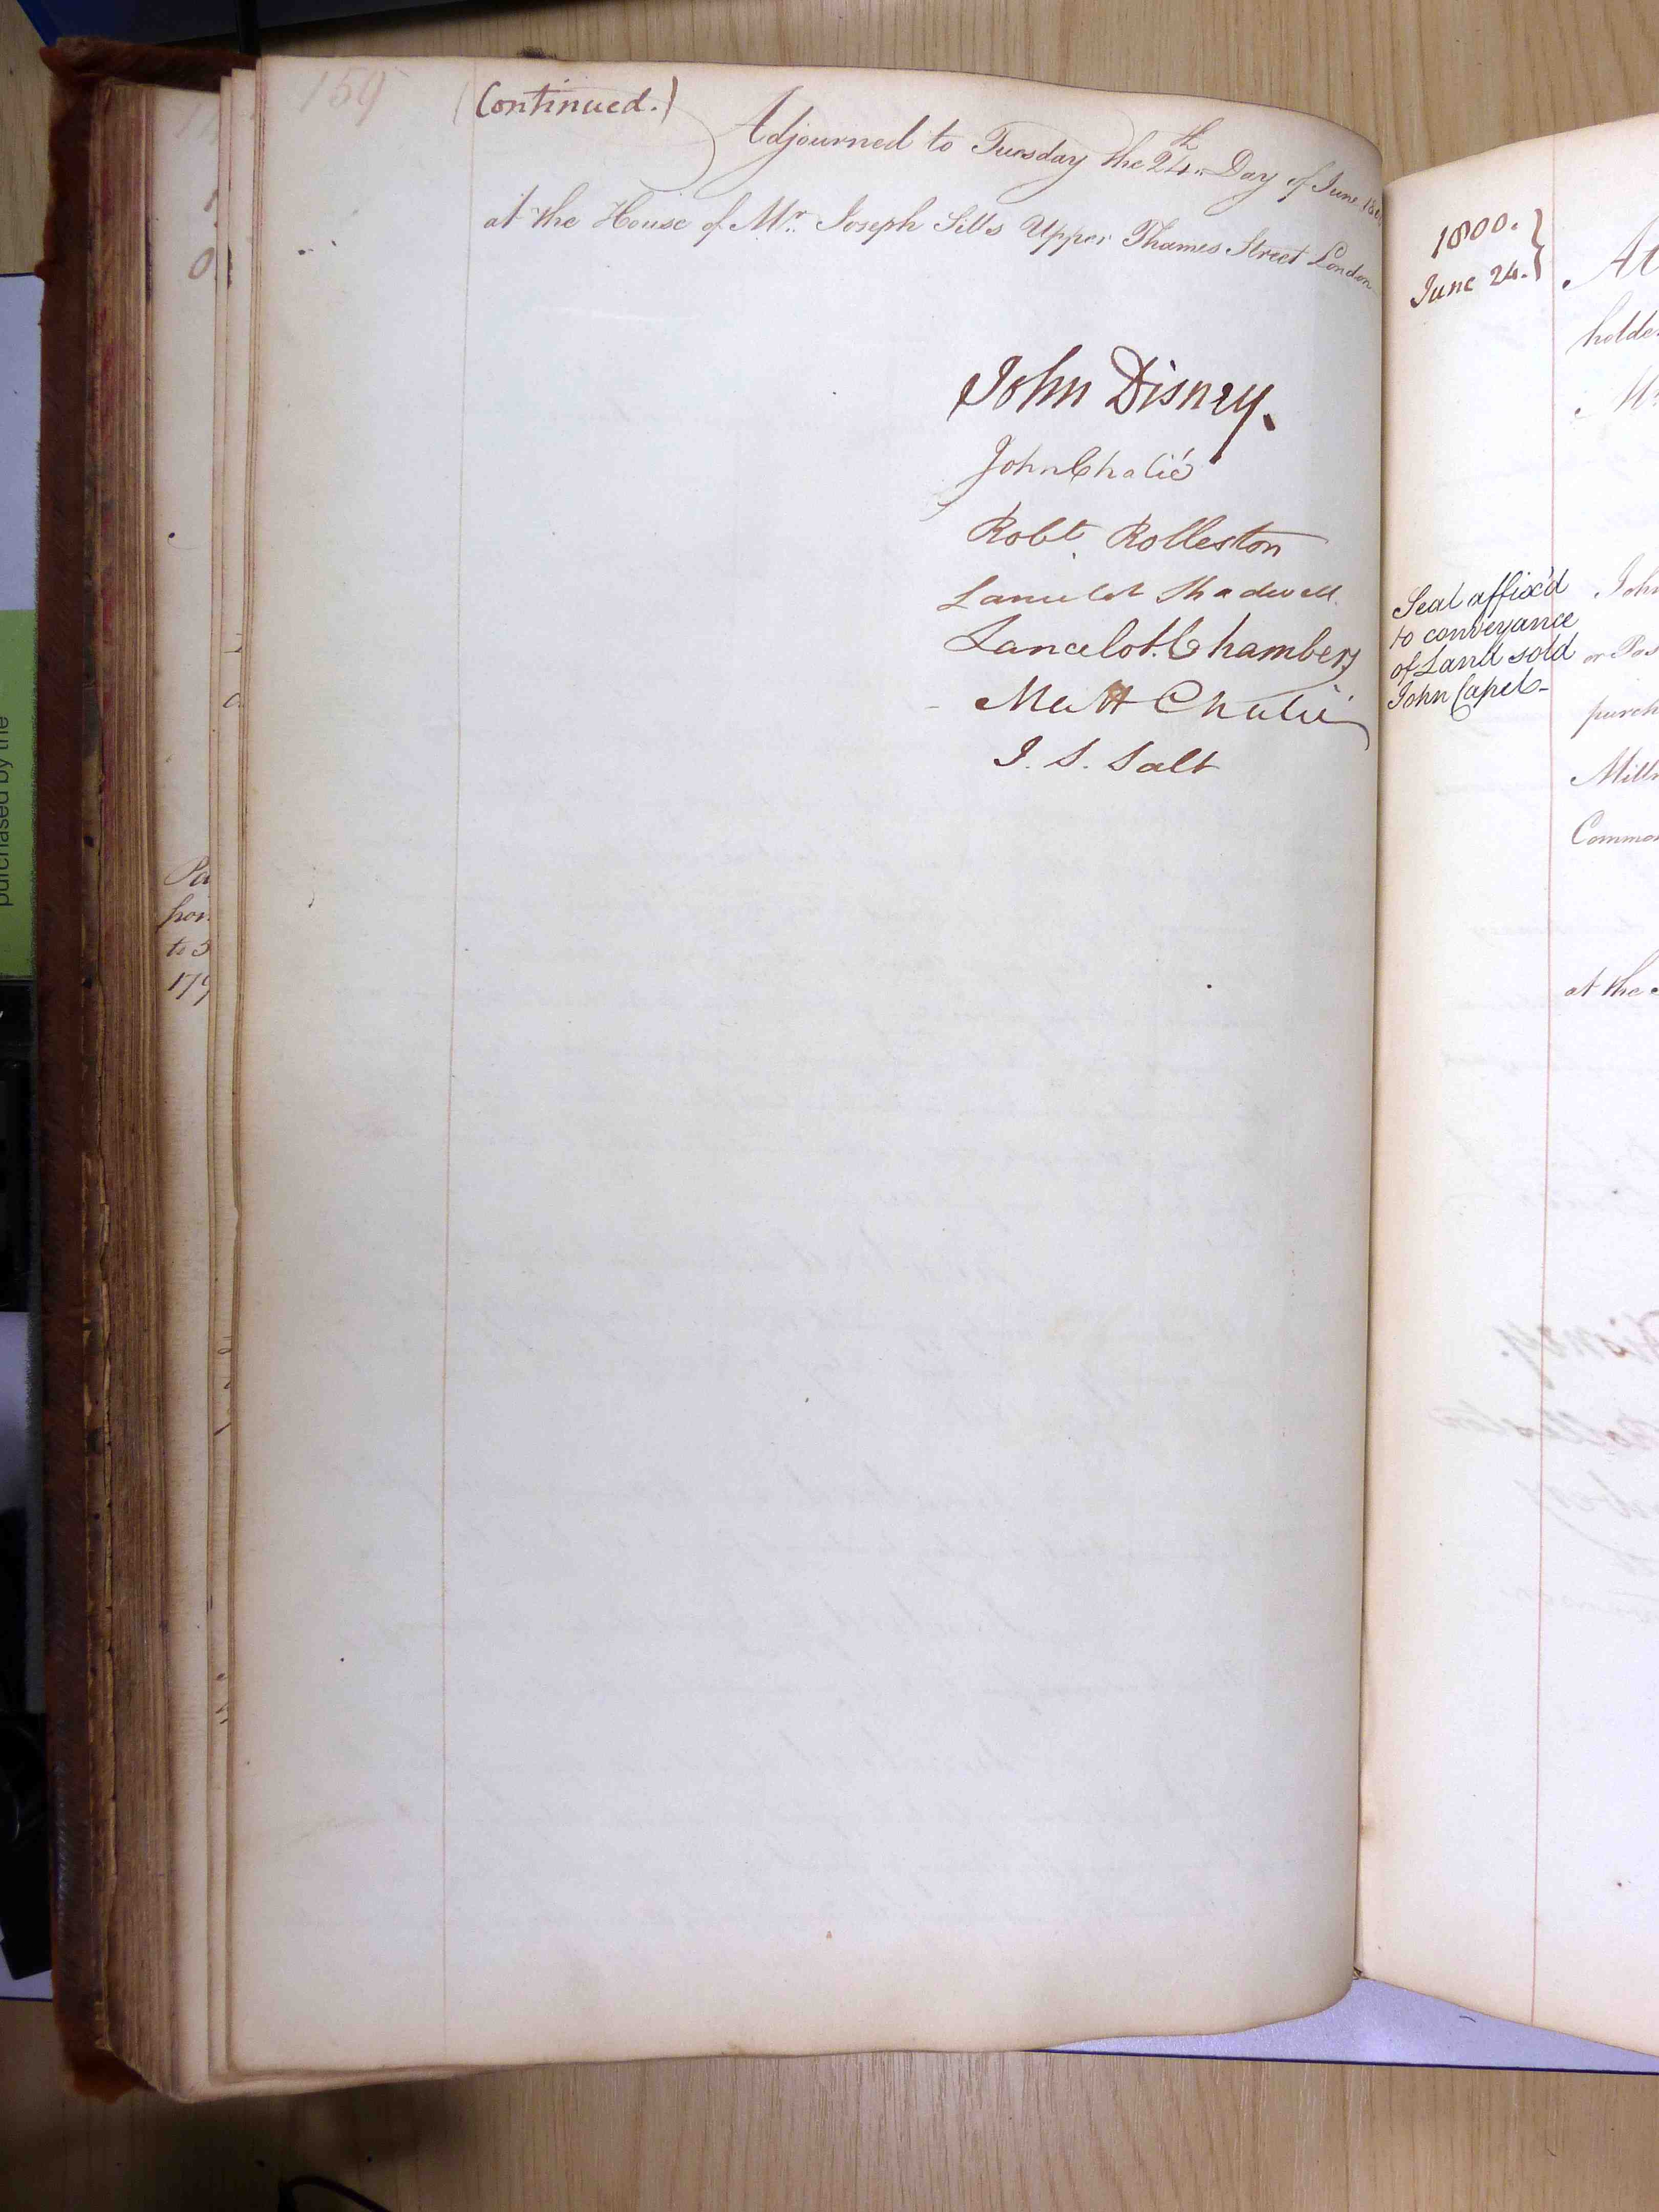 159
(Continued.)
Adjourned to Tuesday the 24th Day of June
at the House of Mr. Joseph Sills Upper Thames Street London
John Disney.
John Chalié
Robt. Rolleston
Lancelot Shadwell
Lancelot Chambers
Matt Chalié
J. S. Salt
1800.
June 24.
Seal affix'd
to conveyance
of Land sold
John Capel
At
holde
Mr
John
or Pos
purch
Mill
Commo
at the
Pa
to 3
179
purchased by the